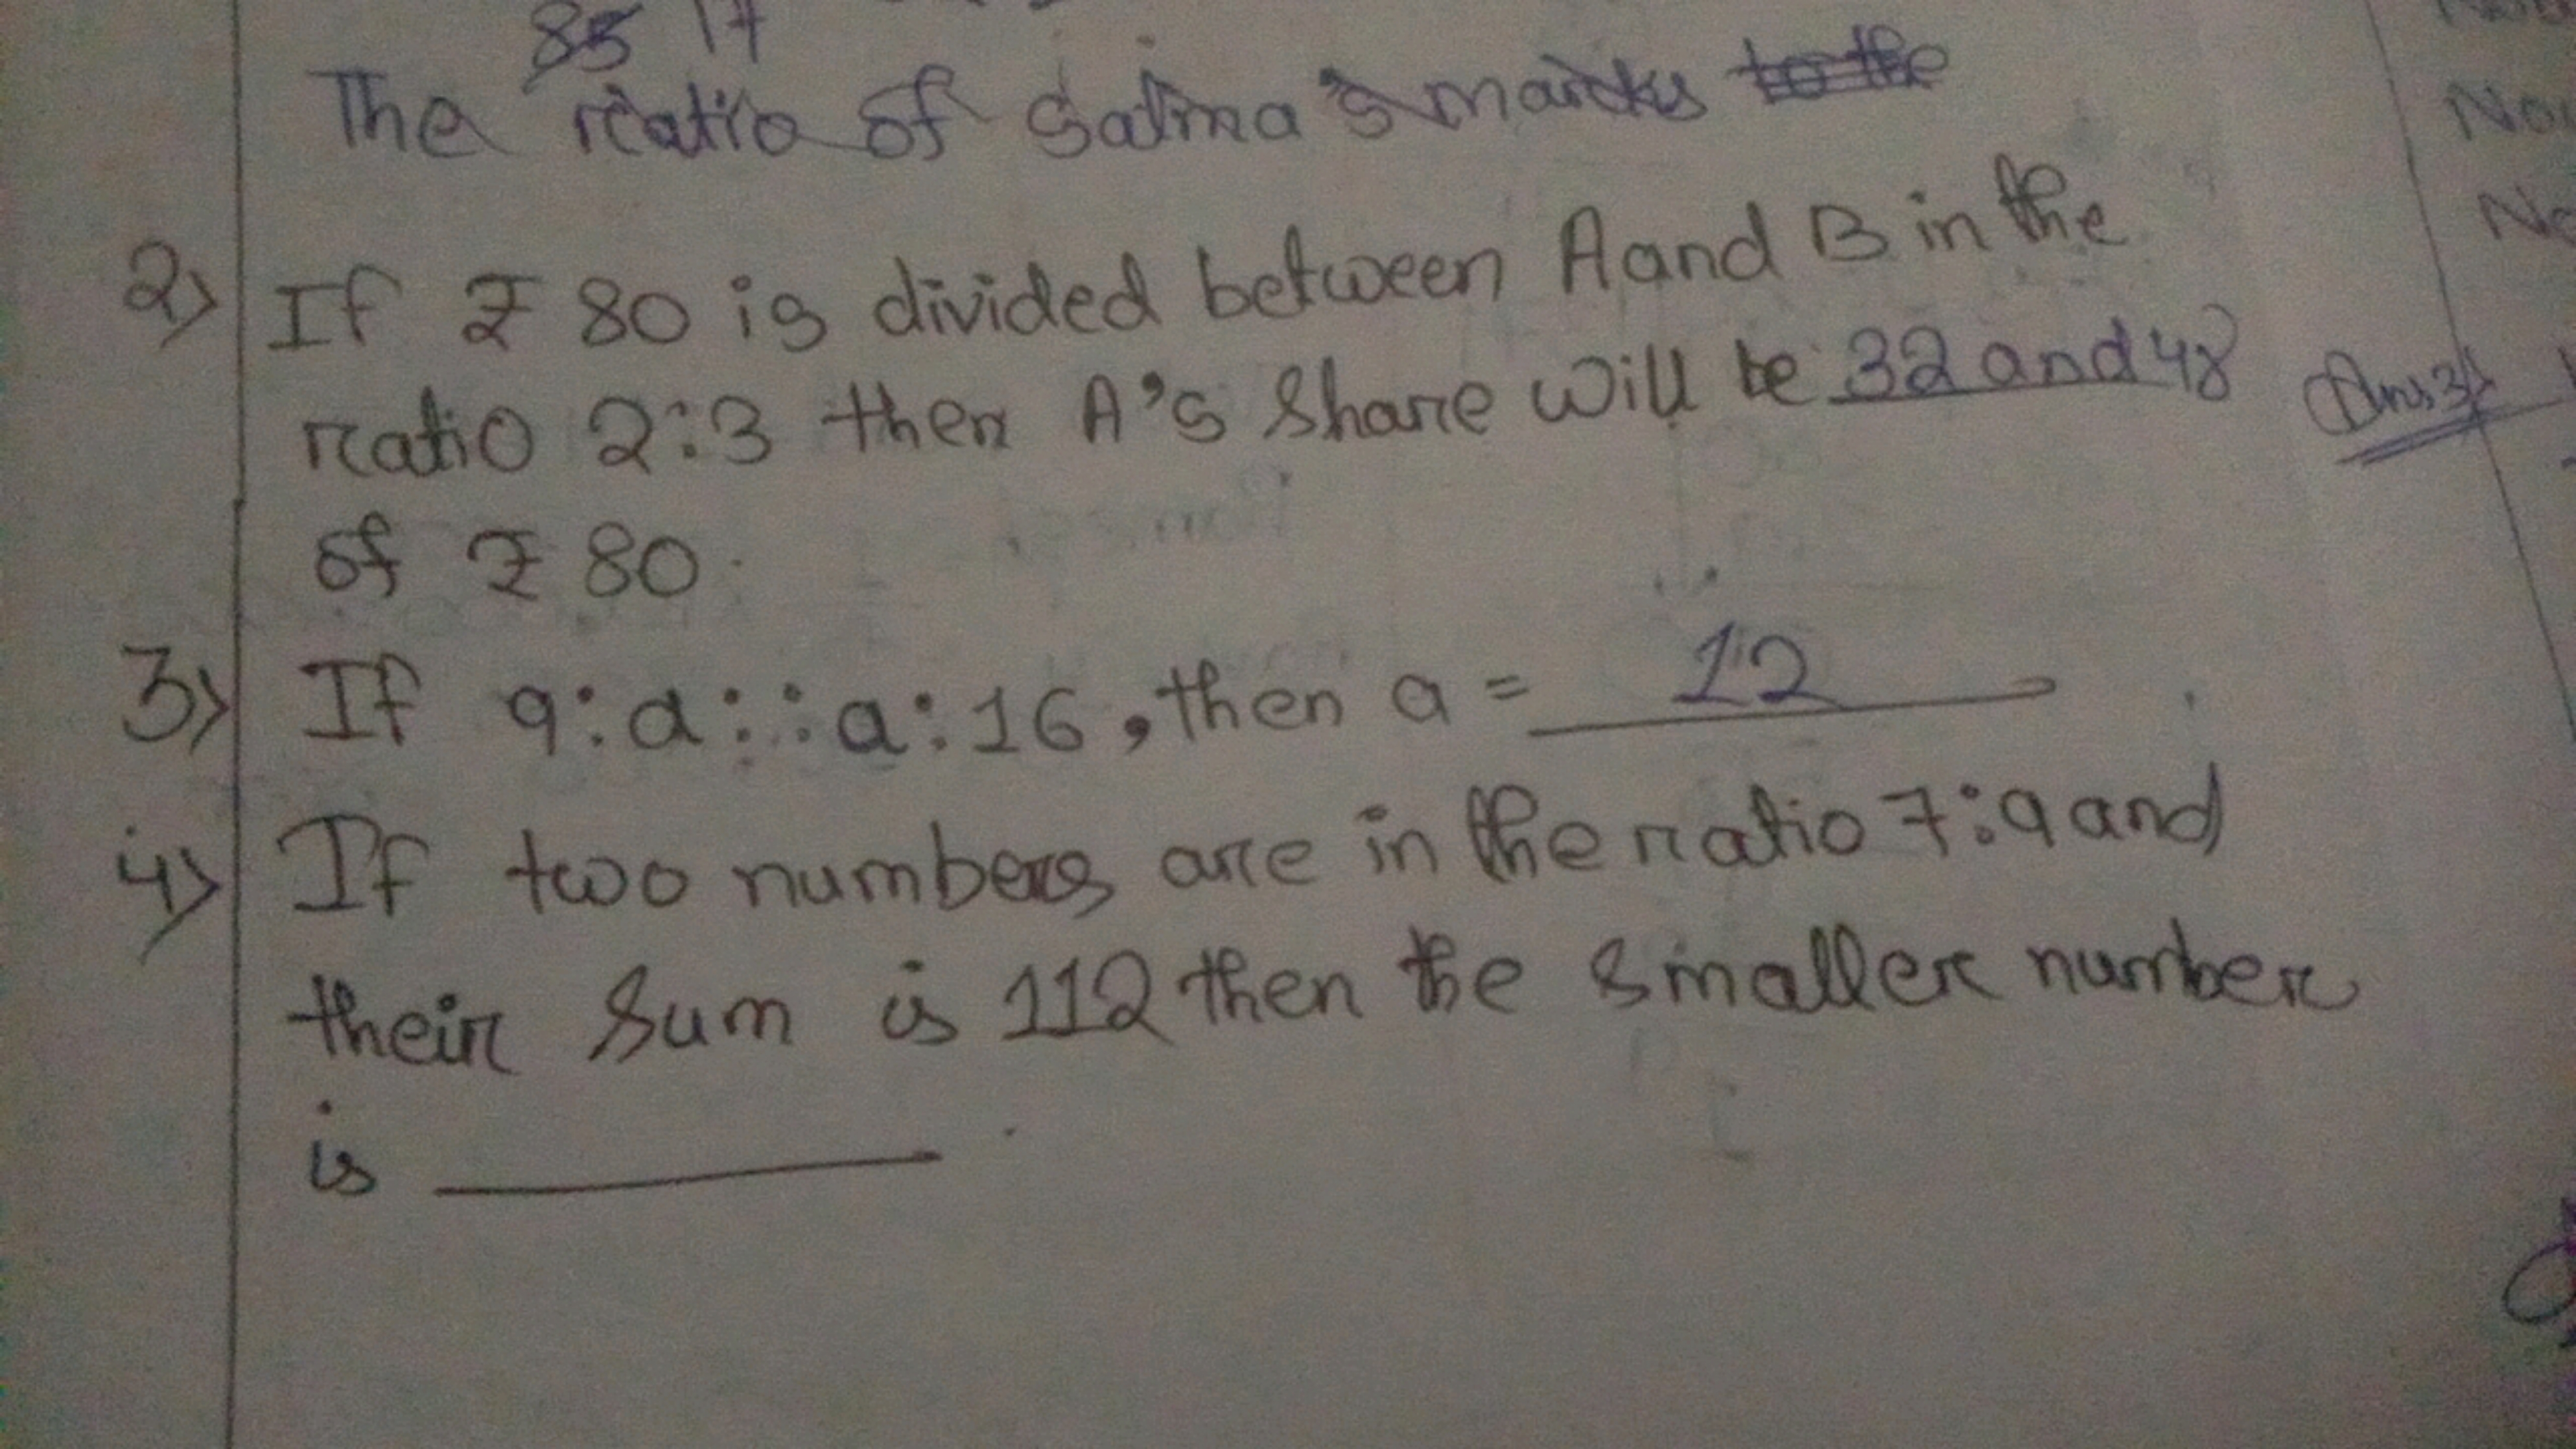 85 17
The ratio of Salma's marks to the
2) If ₹ 80 is divided between A and B in the
ratio 2:3 then A's share will be 32 and 48
of ₹ 80.
Ans3)
3) If 9:a::a:16, then a = 12
4) If two numbers are in the ratio 7:9 and
their sum is 112 then the smaller number
is ________.